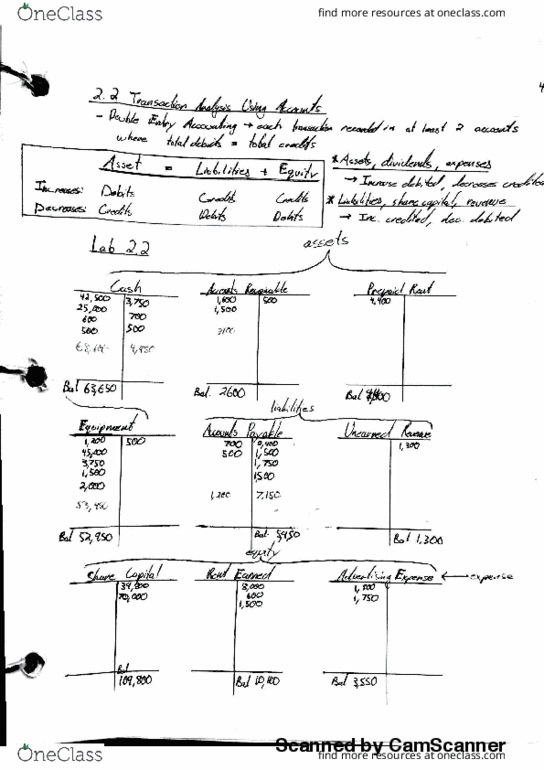 OneClass
find more resources at oneclass.com
4
2.2 Transaction Analysis Using Accounts
- Double Entry Accounting → each transaction recorded in at least 2 accounts
where total debits = total credits
Asset = Liabilities + Equity
Increases: Debits Credits Credits
Decreases: Credits Debits Debits
* Assets, dividends, expenses
→ Increase debited, decreases credited
* Liabilities, share capital, revenue
→ Inc. credited, dec. debited
Lab 2.2
assets
Cash Accounts Receivable Prepaid Rent
42,500 3,750 1,600 500 4,400
25,000 700 1,500
600 500
500 3100
4,950
Bal 63,650 Bal. 2600 Bal
liabilities
Equipment Accounts Payable Unearned Revenue
1,200 500 700 1,300
45,000 500 1,500
3,750 1,750
1,500 1,500
2,000
53,450 1,200 7,150
Bal 52,950 Bal. 5950 Bal 1,300
equity
Share Capital Rent Earned Advertising Expense ← expense
39,800 8,000 1,800
70,000 600 1,750
1,500
Bal
109,800 Bal 10,100 Bal 3,550
Scanned by CamScanner
OneClass
find more resources at oneclass.com